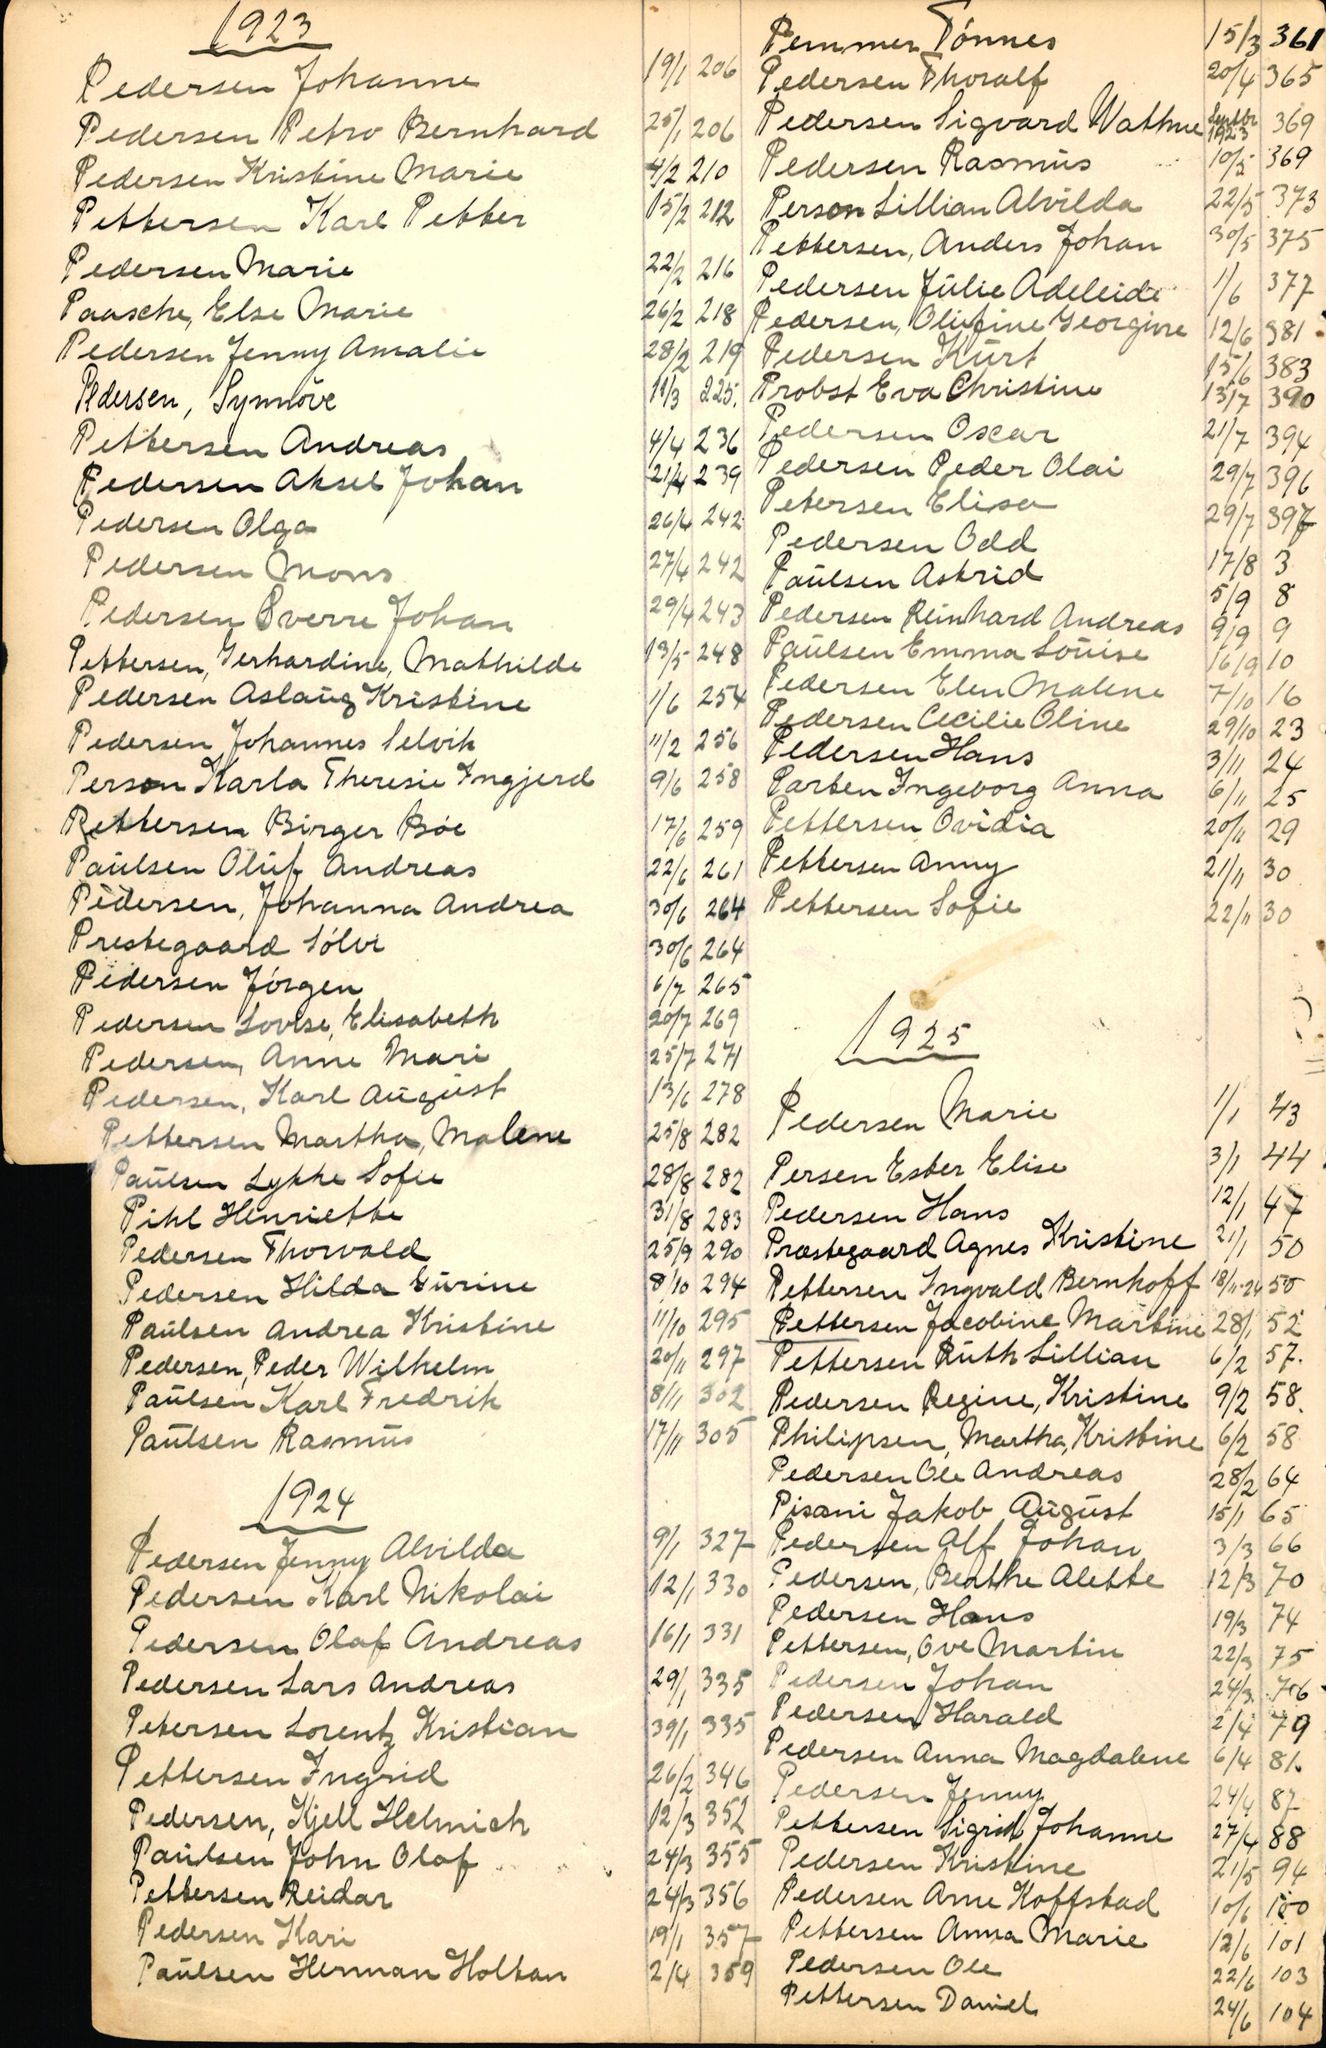 1923
Pedersen Johanne 19/1 206
Pedersen Petro Bernhard 25/1 206
Pedersen Kristine Marie 4/2 210
Pettersen Karl Petter 15/2 212
Pedersen Marie 22/2 216
Paasche, Else Marie 26/2 218
Pedersen Jenny Amalie 28/2 219
Pedersen, Synnöve 11/3 225.
Pettersen Andreas 4/4 236
Pedersen Aksel Johan 21/4 239
Pedersen Olga 26/4 242
Pedersen Mons 27/4 242
Pedersen Sverre Johan 29/4 243
Pettersen, Gerhardine, Mathilde 13/5 248
Pedersen Aslaug Kristine 1/6 254
Pedersen Johannes Selvik 11/2 256
Person Karla Theresie Ingjerd 9/6 258
Pettersen Birger Böe 17/6 259
Paulsen Oluf Andreas 22/6 261
Pedersen, Johanna Andrea 30/6 264
Prestegaard Sölvi 30/6 264
Pedersen Jörgen 6/7 265
Pedersen Lovise, Elisabeth 20/7 269
Pedersen, Anne Mari 25/7 271
Pedersen, Karl August 13/6 278
Pettersen Martha, Malene 25/8 282
Paulsen Lykke Sofie 28/8 282
Pihl Henriette 31/8 283
Pedersen Thorvald 25/9 290
Pedersen Hilda Gurine 8/10 294
Paulsen Andrea Kristine 11/10 295
Pedersen, Peder Wilhelm 20/11 297
Paulsen Karl Fredrik 8/11 302
Paulsen Rasmus 17/11 305
1924
Pedersen Jenny Alvilda 9/1 327
Pedersen Karl Nikolai 12/1 330
Pedersen Olaf Andreas 16/1 331
Pedersen Lars Andreas 29/1 335
Petersen Lorentz Kristian 39/1 335
Pettersen Ingrid 26/2 346
Pedersen, Kjell Helmich 12/3 352
Paulsen John Olaf 24/3 355
Pettersen Reidar 24/3 356
Pedersen Kari 19/1 357
Paulsen Herman Holtan 2/4 359
Pemmer Tönnes 15/3 361
Pedersen Thoralf 20/4 365
Pedersen Sigvard Wathne 1923 369
Pedersen Rasmus 10/5 369
Person Lillian Alvilda 22/5 373
Pettersen, Anders Johan 30/5 375
Pedersen Julie Adeleide 1/6 377
Pedersen, Olufine Georgine 12/6 381
Pedersen Kurt 15/6 383
Probst Eva Christine 13/7 390
Pedersen Oscar 21/7 394
Pedersen Peder Olai 29/7 396
Petersen Elisa 29/7 397
Pedersen Odd 17/8 3
Paulsen Astrid 5/9 8
Pedersen Reinhard Andreas 9/9 9
Paulsen Emma Louise 16/9 10
Pedersen Elen Malene 7/10 16
Pedersen Cecilie Oline 29/10 23
Pedersen Hans 3/11 24
Parten Ingeborg Anna 6/11 25
Pettersen Ovidia 20/11 29
Pettersen Anny 21/11 30
Pettersen Sofie 22/11 30
1925
Pedersen Marie 1/1 43
Persen Ester Elise 3/1 44
Pedersen Hans 12/1 47
Præstegaard Agnes Kristine 21/1 50
Pettersen Ingvald Bernhoff 18/11-24 50
Pettersen Jacobine Martine 28/1 52
Pettersen Ruth Lillian 6/2 57.
Pedersen Regine, Kristine 9/2 58.
Philipsen, Martha, Kristine 6/2 58
Pedersen Ole Andreas 28/2 64
Pisani Jakob August 15/1 65
Pedersen Alf Johan 3/3 66
Pedersen, Berthe Alette 12/3 70
Pedersen Hans 19/3 74
Pettersen, Ove Martin 22/3 75
Pedersen Johan 24/3 76
Pedersen Harald 2/4 79
Pedersen Anna Magdalene 6/4 81.
Pedersen Jenny 24/4 87
Pettersen Sigrid Johanne 27/4 88
Pedersen Kristine 21/5 94
Pedersen Arne Koffstad 10/6 100
Pettersen Anna Marie 12/6 101
Pedersen Ole 22/6 103
Pettersen Daniel 24/6 104